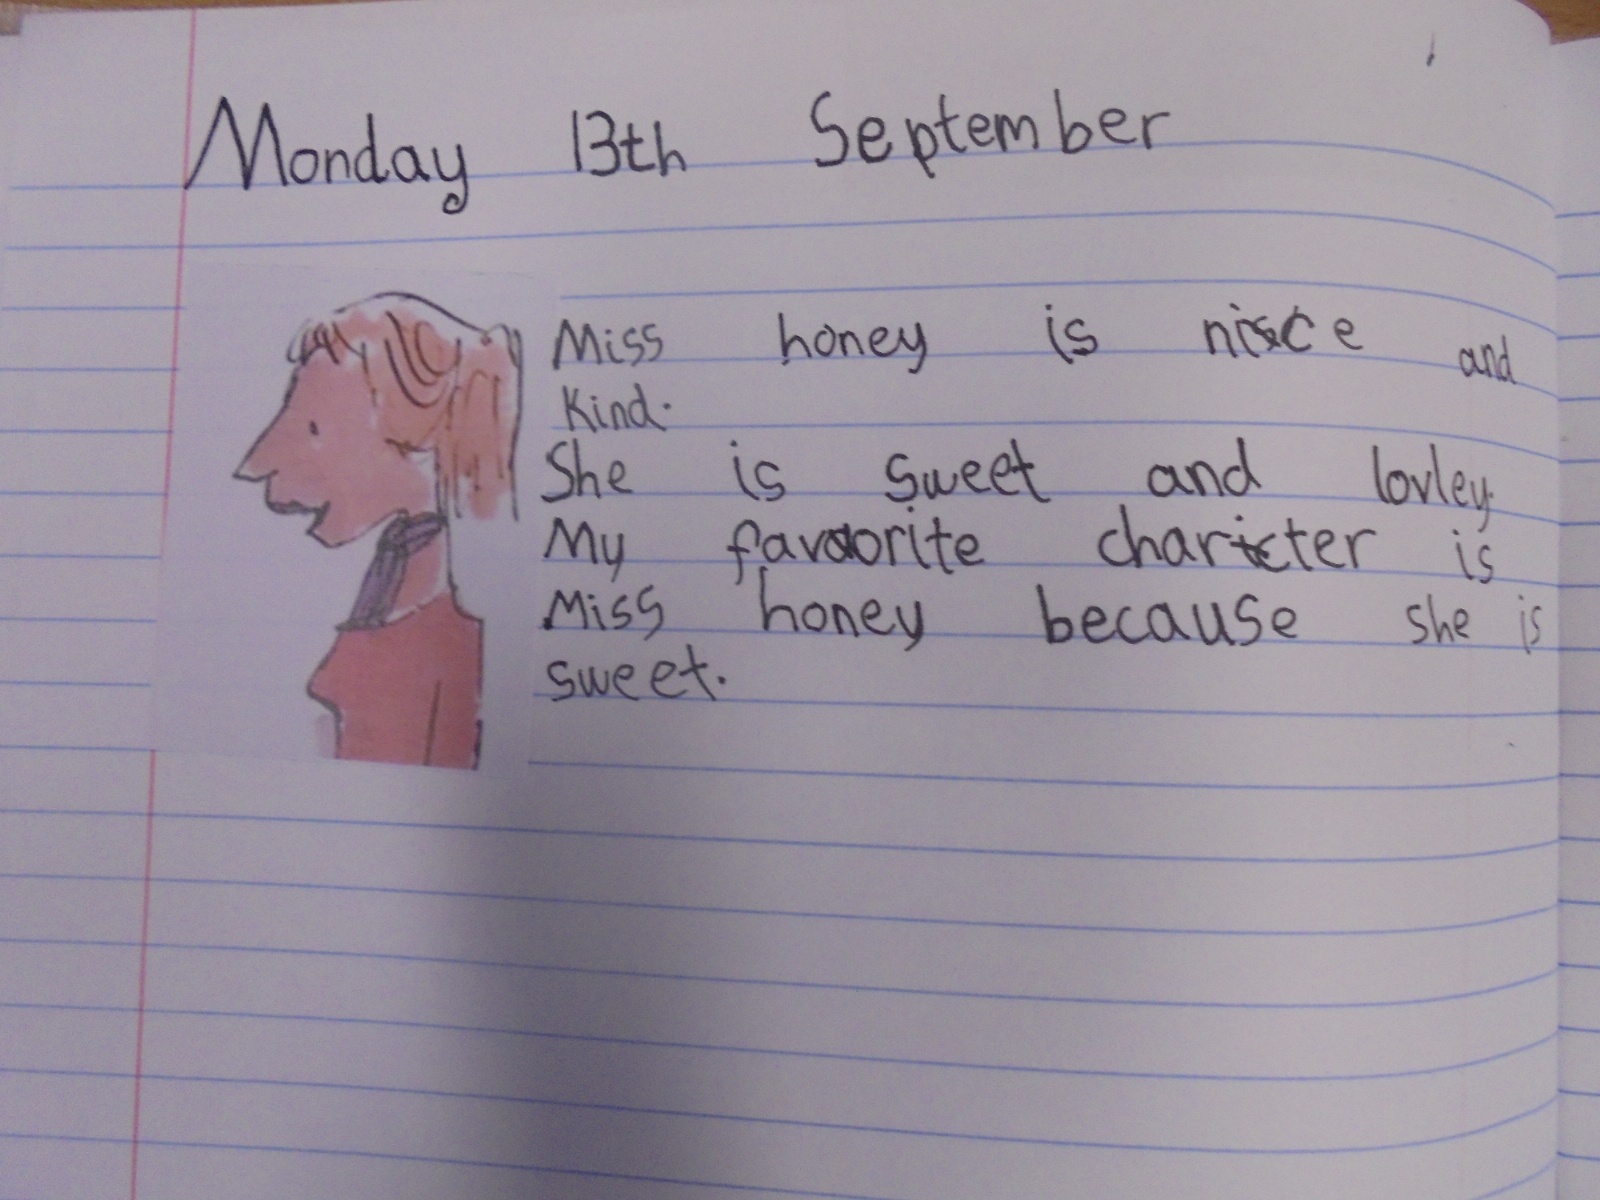 Monday 13th September
Miss honey is nisce and
Kind.
She is sweet and lovley.
My favaorite charicter is
Miss honey because she is
sweet.